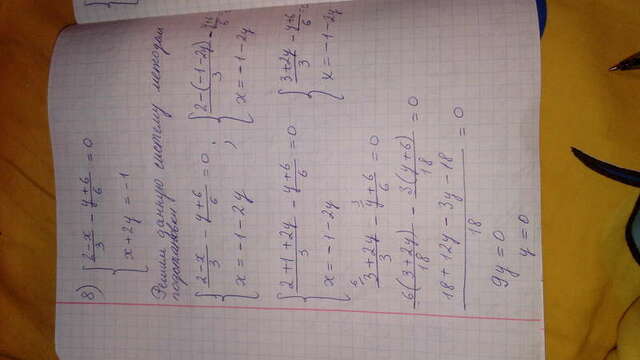 8) { (2-x)/3 - (y+6)/6 = 0
x + 2y = -1
Решим данную систему методом
подстановки
{ (2-x)/3 - (y+6)/6 = 0 ; { (2-(-1-2y))/3 - (y+6)/6
x = -1-2y ; x = -1-2y
{ (2+1+2y)/3 - (y+6)/6 = 0 { (3+2y)/3 - (y+6)/6 =
x = -1-2y x = -1-2y
(3+2y)/3 - (y+6)/6 = 0
6(3+2y)/18 - 3(y+6)/18 = 0
(18+12y-3y-18)/18 = 0
9y = 0
y = 0